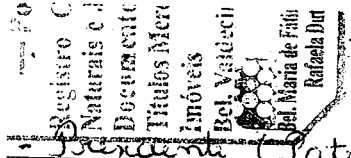 Po
Registro C
Naturais e J
Documento
Títulos Merc
Imóveis
Bel. Valdecir
Bel. Maria de Fáti
Rafaela Dut
Presidente